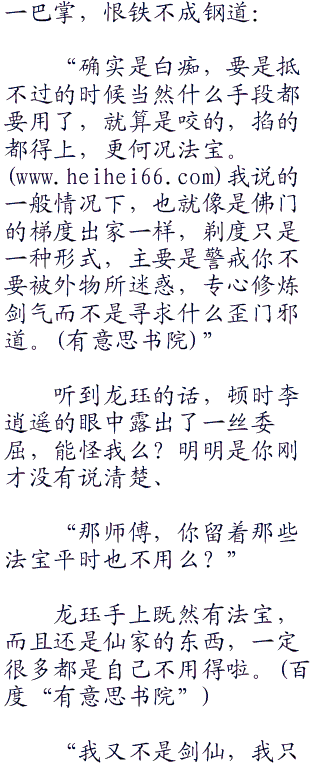 一巴掌，恨铁不成钢道：
“确实是白痴，要是抵
不过的时候当然什么手段都
要用了，就算是咬的，掐的
都得上，更何况法宝。
(www.heihei66.com)我说的
一般情况下，也就像是佛门
的梯度出家一样，剃度只是
一种形式，主要是警戒你不
要被外物所迷惑，专心修炼
剑气而不是寻求什么歪门邪
道。(有意思书院)”
听到龙珏的话，顿时李
逍遥的眼中露出了一丝委
屈，能怪我么？明明是你刚
才没有说清楚、
“那师傅，你留着那些
法宝平时也不用么？”
龙珏手上既然有法宝，
而且还是仙家的东西，一定
很多都是自己不用得啦。(百
度“有意思书院”)
“我又不是剑仙，我只